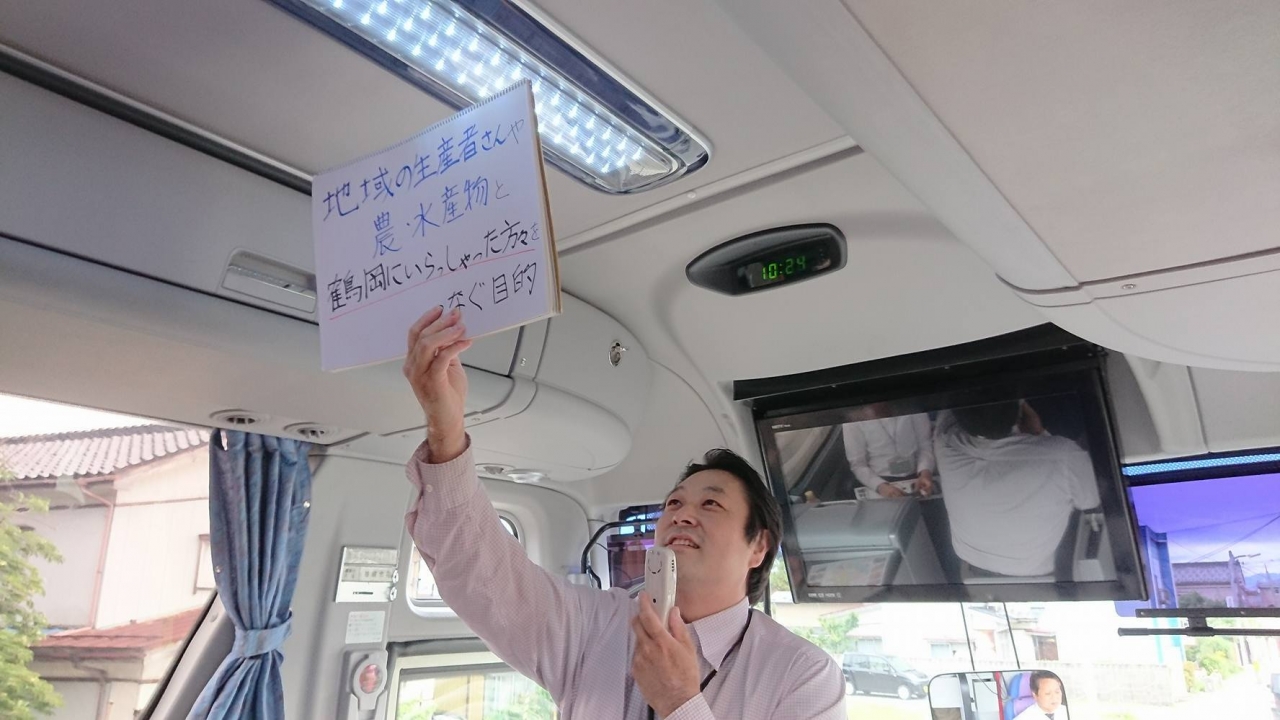 地域の生産者さんや
農・水産物と
鶴岡にいらっしゃった方々を
つなぐ目的
10:24